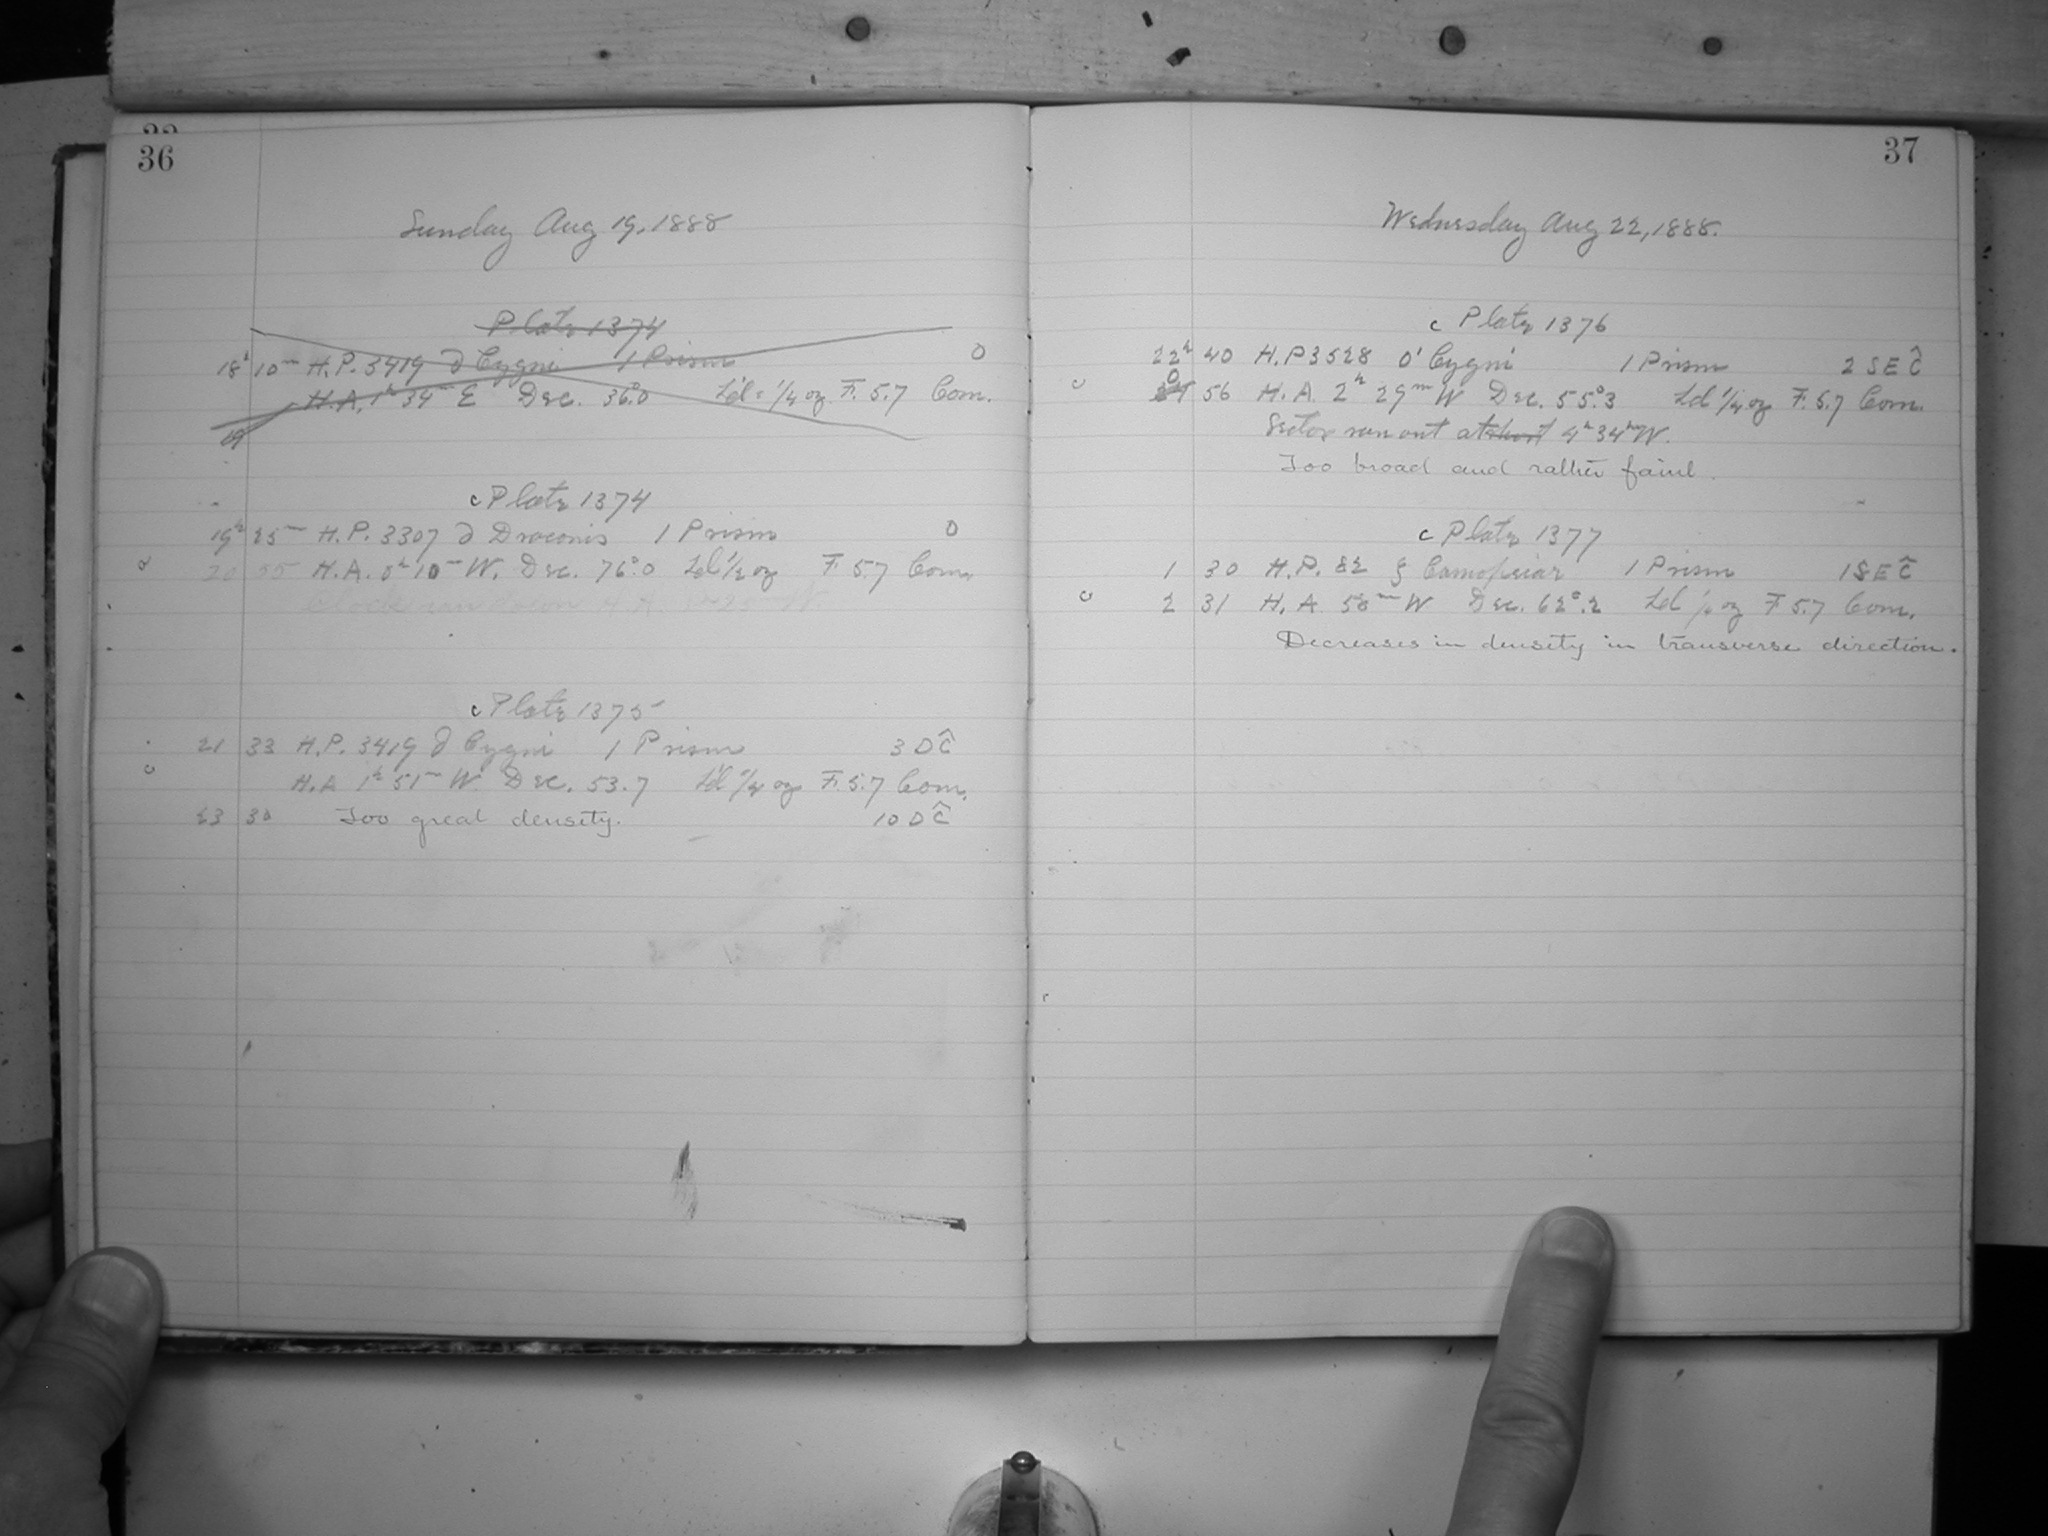 36
Sunday Aug 19, 1888
Plate 1374
18h 10m H.P. 3419 ∂ Cygni 1 Prism 0
H.A. 1h 34m E Dec. 36.0 Ld = 1/4 oz F. 5.7 Com.
19
c Plate 1374
19h 25m H.P. 3307 ∂ Draconis 1 Prism 0
20 55 H.A. 0h 10m W. Dec. 76°.0 Ld 1/2 oz F 5.7 Com.
c Plate 1375
21 33 H.P. 3419 ∂ Cygni 1 Prism 3 D Ĉ
H.A 1h 51m W. Dec. 53.7 Ld 1/4 oz F. 5.7 Com.
23 30 Too great density. 10 D Ĉ
37
Wednesday Aug 22, 1888.
c Plate 1376
22h 40 H.P 3528 O' Cygni 1 Prism 2 S E Ĉ
0 56 H.A. 2h 29m W Dec. 55°.3 Ld 1/4 oz F. 5.7 Com.
Sector run out at 4h 34m W.
Too broad and rather faint.
c Plate 1377
1 30 H.P. 82 1 Prism 1 S E Ĉ
2 31 H. A. 58m W Dec. 62°.2 Ld oz F 5.7 Com.
Decreases in density in transverse direction.